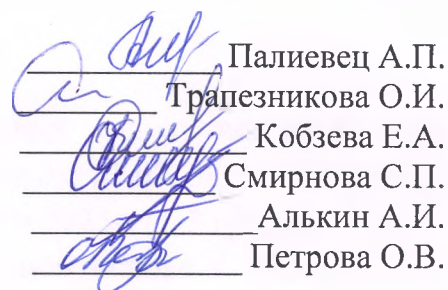 Палиевец А.П.
Трапезникова О.И.
Кобзева Е.А.
Смирнова С.П.
Алькин А.И.
Петрова О.В.